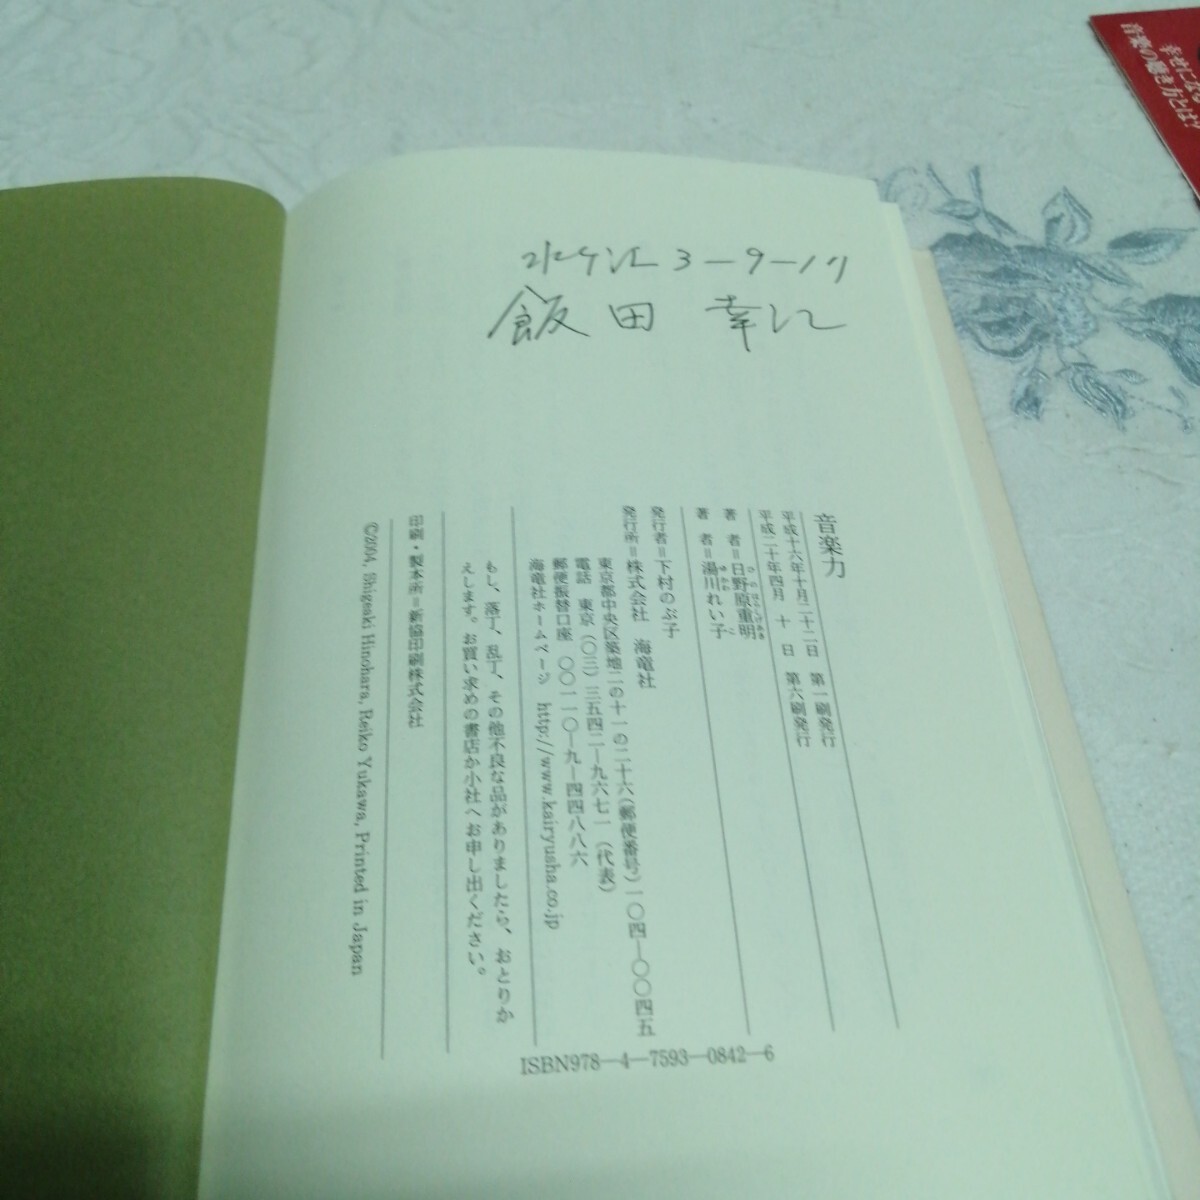 幸せになる
音楽の聴き方とは?
3-9-17
飯田 幸江
音楽力
平成十六年十月二十二日 第一刷発行
平成二十年四月 十 日 第六刷発行
著 者=日野原重明
ひのはらしげあき
著 者=湯川れい子
ゆかわ こ
発行者=下村のぶ子
発行所=株式会社 海竜社
東京都中央区築地二の十一の二十六(郵便番号)一〇四―〇〇四五
電話 東京(〇三)三五四二―九六七一(代表)
郵便振替口座 〇〇一一〇―九―四四八八六
海竜社ホームページ http://www.kairyusha.co.jp
もし、落丁、乱丁、その他不良な品がありましたら、おとりか
えします。お買い求めの書店か小社へお申し出ください。
印刷・製本所=新協印刷株式会社
©2004, Shigeaki Hinohara, Reiko Yukawa, Printed in Japan
ISBN978―4―7593―0842―6